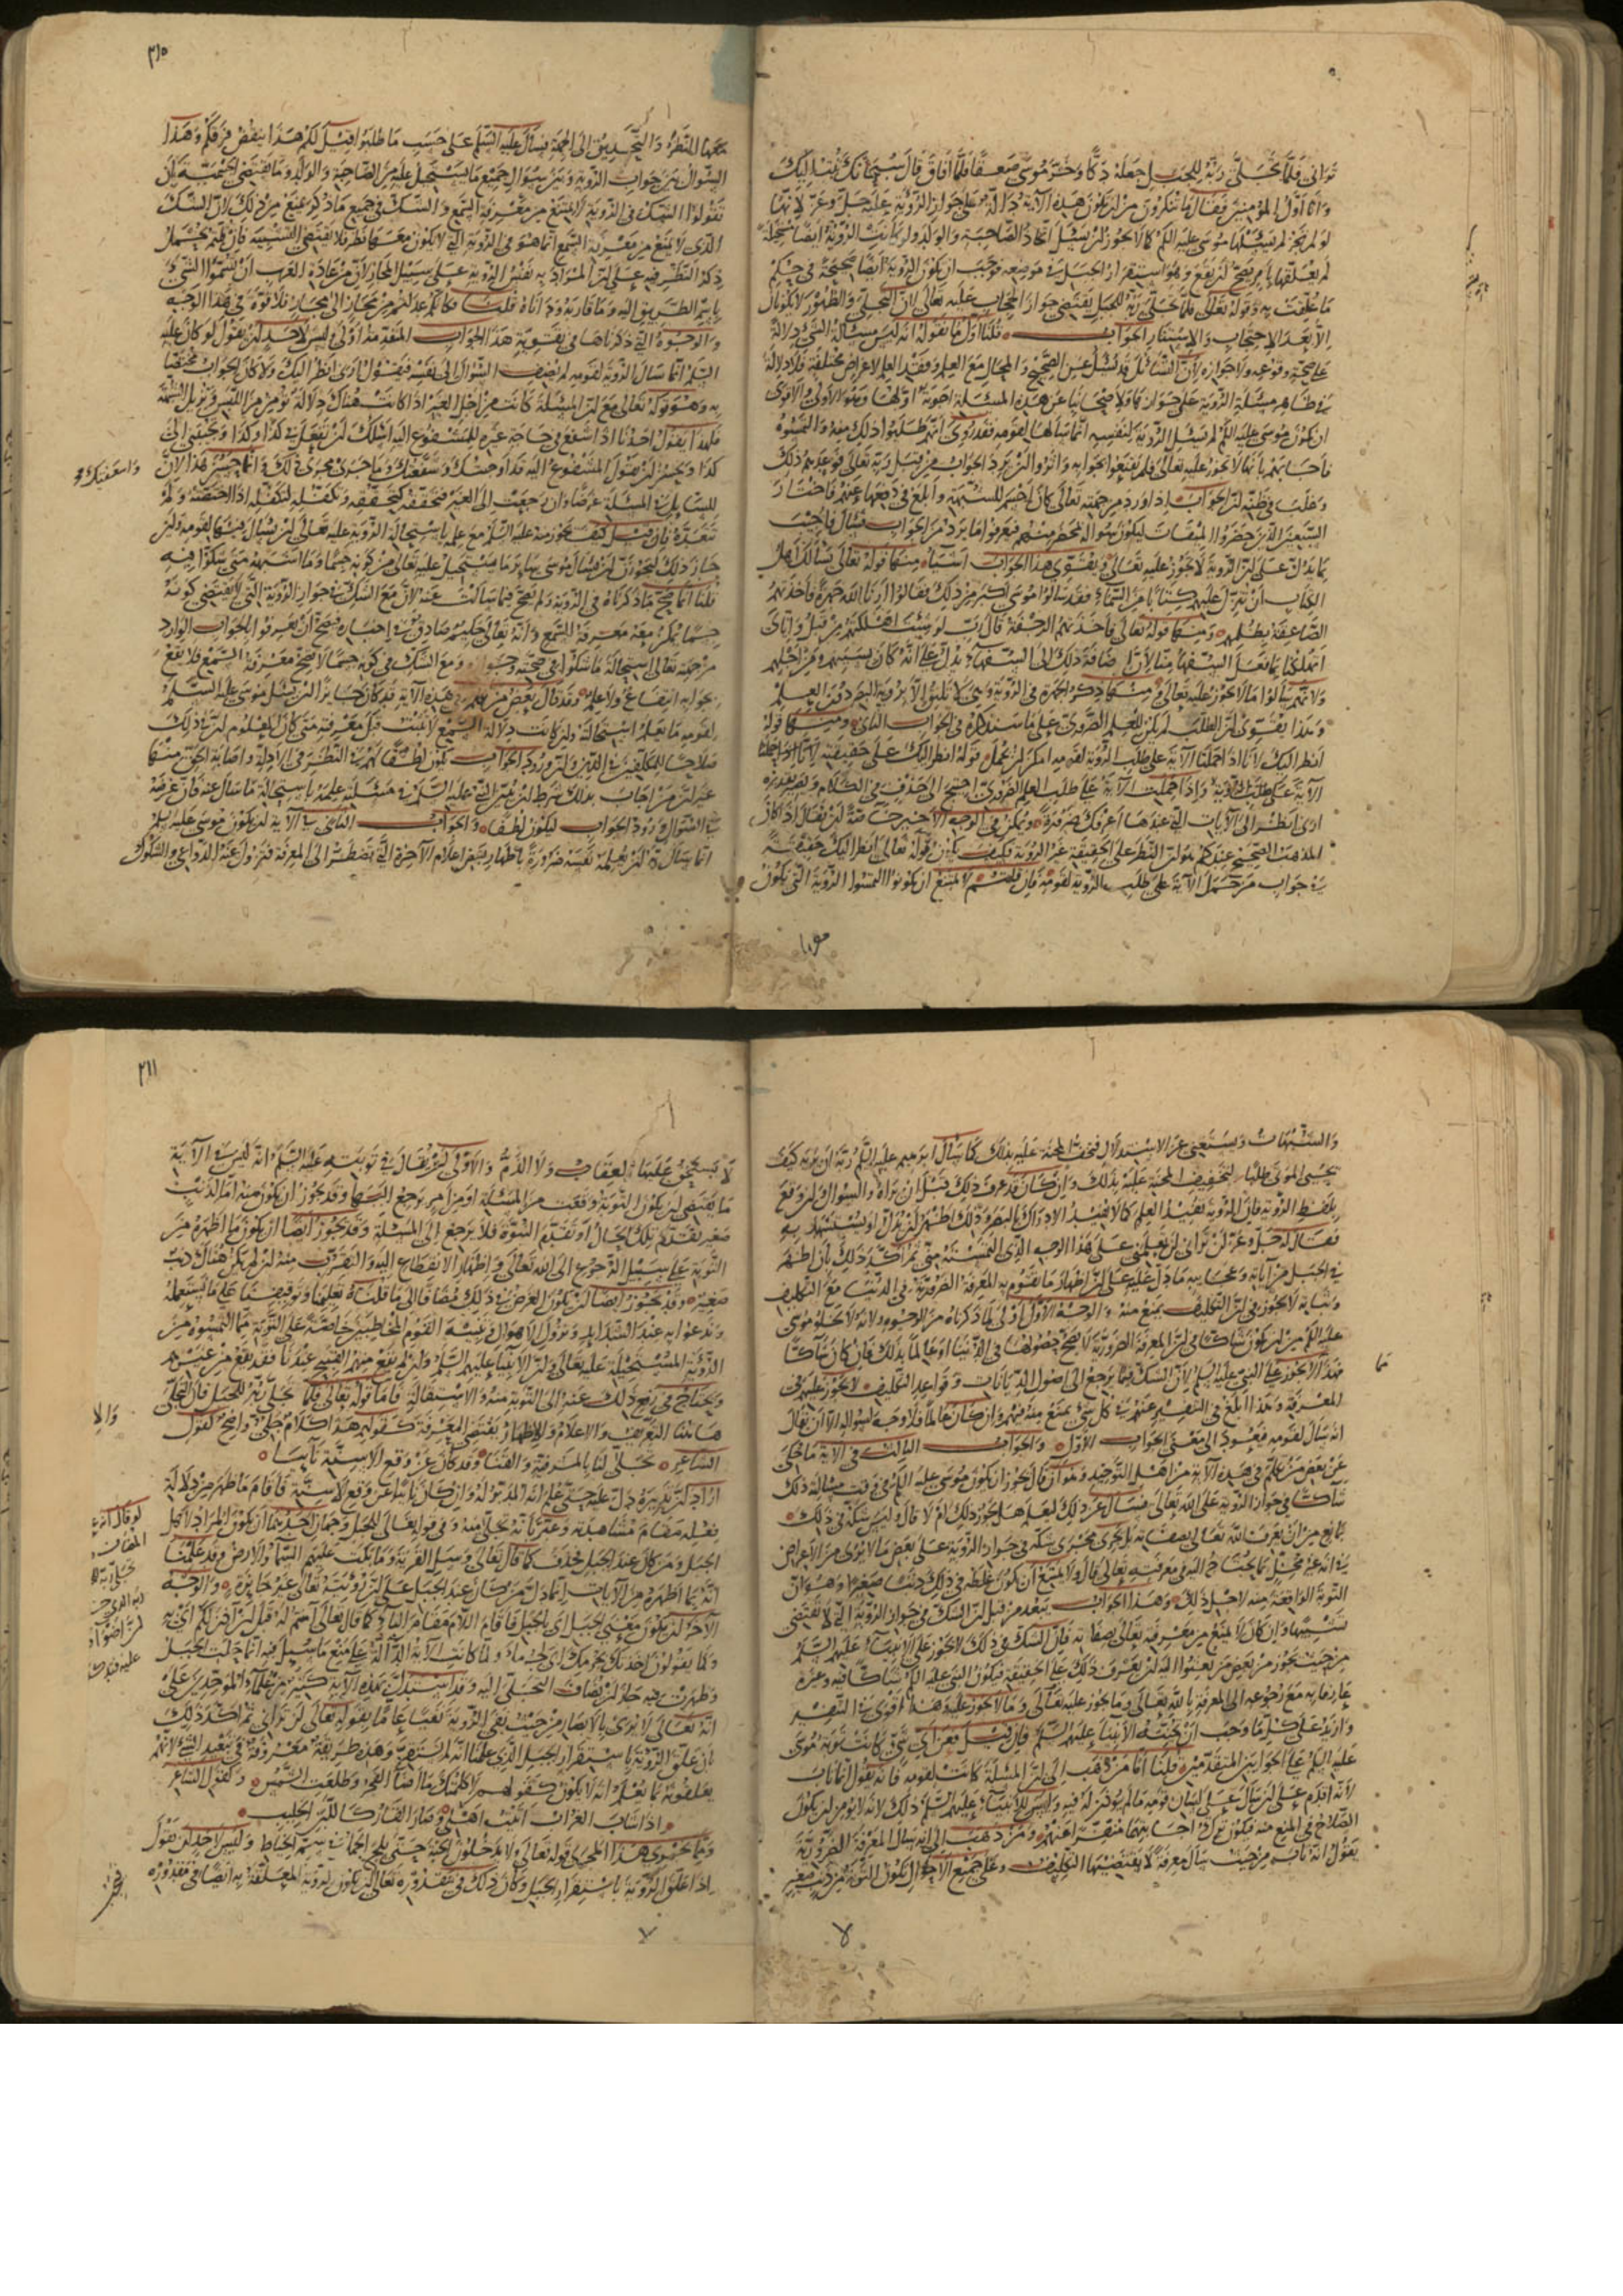 تراني فلما تجلى ربه للجبل جعله دكا وخر موسى صعقا فلما افاق قال سبحانك تبت اليك
وانا اول المؤمنين فقال ما تنكرون من ان تكون هذه الآية دالة على جواز الرؤية عليه جل وعز لانها
لو لم تجز لم يسئلها موسى عليه السلم كما لا يجوز ان يسئل اتخاذ الصاحبة والولد ولو كانت الرؤية ايضا مستحيلة
لم يعلقها بامر يصح ان يقع وهو استقرار الجبل في موضعه فوجب ان تكون الرؤية ايضا صحيحة في حكم
ما علقت به وقوله تعالى فلما تجلى ربه للجبل يقتضي جواز الحجاب عليه تعالى لان التجلي والظهور لا يكونان
الا بعد الاحتجاب والاستتار الجواب قلنا اول ما نقوله انه ليس مسئلة الشئ دلالة
على صحته وقوعه ولا جوازه لان السائل قد يسئل عن الصحيح والمحال مع العلم وفقد العلم لاغراض مختلفة فلا دلالة
في ظاهر مسئلة الرؤية على جوازها ولاصحابنا عن هذه المسئلة اجوبة اولها وهو الاولى والاقوى
ان يكون موسى عليه السلم لم يسئل الرؤية لنفسه انما سألها لقومه فقد روى انهم طلبوا ذلك منه والتمسوه
فاجابهم بانها لا تجوز عليه تعالى فلم يقنعوا بجوابه واثروا ان يرد الجواب من قبل ربه تعالى فوعدهم ذلك
وغلب في ظنه ان الجواب اذا ورد من جهته تعالى كان احسم للشبهة وابلغ في دفعها عنهم فاختار
السبعين الذين حضروا الميقات ليكون سؤاله بمحضر منهم فيعرفوا ما يرد من الجواب فسأل فاجيب
بما يدل على ان الرؤية لا تجوز عليه تعالى ويقوى هذا الجواب اشياء منها قوله تعالى يسألك اهل
الكتاب ان تنزل عليهم كتابا من السماء فقد سألوا موسى اكبر من ذلك فقالوا ارنا الله جهرة فاخذتهم
الصاعقة بظلمهم ومنها قوله تعالى فلما اخذتهم الرجفة قال رب لو شئت اهلكتهم من قبل واياى
اتهلكنا بما فعل السفهاء منا لان اضافة ذلك الى السفهاء يدل على انه كان بسببهم ومن اجلهم
وانهم سألوا ما لا يجوز عليه تعالى ومنها ذكر الجهرة في الرؤية وهي لا تليق الا برؤية البصر دون العلم
وهذا يقوى ان الطلب لم يكن للعلم الضروري على ما سنذكره في الجواب الثاني ومنها قوله
انظر اليك لانا اذا حملنا الآية على طلب الرؤية لقومه امكن ان يحمل قوله انظر اليك على حقيقته
الآية على طلب العلم الضروري احتيج الى حذف في الكلام ويصير تقديره
ارني انظر الى الآيات التي عندها اعرفك ضرورة ويمكن في الوجه الاخير خاصة ان يقال اذا كان
المذهب الصحيح عندكم هو ان النظر على الحقيقة غير الرؤية فكيف يكون قوله تعالى انظر اليك حقيقة
في جواب من حمل الآية على طلب الرؤية لقومه فان قلتم لا يمتنع ان يكونوا التمسوا الرؤية التي يكون
٢١٥
معها النظر والتحديق الى الجهة فسأل عليه السلم على حسب ما طلبوا قيل لكم هذا ينقض فرقكم وهذا
السؤال بين جواب الرؤية وبين سؤال جميع ما يستحيل عليه من الصاحبة والولد وما يقتضي الجسمية بان
تقولوا الشك في الرؤية لا يمنع من معرفة السمع والشك في جميع ما ذكر يمنع من ذلك لان الشك
الذي لا يمنع من معرفة السمع انما هو في الرؤية التي لا يكون معها نظر فلا يقتضي التشبيه فان قلتم يحمل
ذكر النظر فيه على ان المراد به نفس الرؤية على سبيل المجاز لان من عادة العرب ان يسموا الشئ
باسم الطريق اليه وما قاربه وداناه قلنا فكانكم عدلتم من مجاز الى مجاز فلا قوة في هذا الوجه
والوجوه التي ذكرناها في تقوية هذا الجواب المتقدمة اولى وليس لاحد ان يقول لو كان عليه
السلم انما سأل الرؤية لقومه لم يضف السؤال الى نفسه فيقول ارني انظر اليك ولا كان الجواب مختصا
به وهو قوله تعالى لن تراني مع ان المسئلة كانت من اجل الغير اذا كانت هناك دلالة تؤمن من اللبس وتزيل الشبهة
فلهذا يقول احدنا اذا شفع في حاجة غيره للمشفوع اليه اسئلك ان تفعل بي كذا وكذا وتجيبني الى
كذا ويحسن ان يقول المشفوع اليه قد اجبتك وشفعتك وما جرى مجرى ذلك وانما حسن هذا لان
للسائل في المسئلة غرضا وان رجعت الى الغير لتحققه به وتكلفه كتكلفه اذا اختصه ولم
تتعده فان قيل كيف يجوز منه عليه السلم مع علمه باستحالة الرؤية عليه تعالى ان يسأل فيها لقومه ولئن
جاز ذلك ليجوزن ان يسأل موسى ساير ما يستحيل عليه تعالى من كونه جسما وما اشبهه متى شكوا فيه
قلنا انما صح ما ذكرناه في الرؤية ولم يصح فيما سألت عنه لان مع الشك في جواز الرؤية التي لا تقتضي كونه
جسما يمكن معه معرفة السمع وانه تعالى حكيم صادق في اخباره فيصح ان يعرفوا بالجواب الوارد
من جهته تعالى استحالة ما شكوا في صحته وجوازه ومع الشك في كونه جسما لا يصح معرفة السمع فلا يقع
بجوابه انتفاع ولا علم وقد قال بعض من تكلم في هذه الآية قد كان جايزا ان يسئل موسى عليه السلم
لقومه ما يعلم استحالته وان كانت دلالة السمع لا تثبت قبل معرفته متى كان المعلوم ان في ذلك
صلاحا للمكلفين في الدين وان ورود الجواب يكون لطفا لهم في النظر في الادلة واصابة الحق منها
غير ان من اجاب بذلك شرط ان يبين النبي عليه السلم في مسئلته علمه باستحالة ما سأل عنه وان غرضه
في السؤال ورود الجواب ليكون لطفا والجواب الثاني في الآية ان يكون موسى عليه السلم
انما سأل ربه ان يعلمه نفسه ضرورة باظهار بعض اعلام الآخرة التي يضطر الى المعرفة فتزول عنه الدواعي والشكوك
والشبهات ويستغني عن الاستدلال فتخف المحنة عليه بذلك كما سأل ابرهيم عليه السلم ربه ان يريه كيف
يحيى الموتى طلبا لتخفيف المحنة عليه بذلك وان كان قد عرف ذلك قبل ان يراه والسؤال وان وقع
بلفظ الرؤية فان الرؤية تفيد العلم كما تفيد الادراك بالبصر وذلك اظهر من ان يدل او يستشهد به
فقال له جل وعز لن تراني اي لن تعلمني على هذا الوجه الذي التمسته مني ثم اكد ذلك بان اظهر
في الجبل من آياته وعجايبه ما دل عليه على ان اظهار ما تقوم به المعرفة الضرورية في الدنيا مع التكليف
وبيانه لا يجوز فان التكليف يمنع منه والوجه الاول اولى لما ذكرناه من الوجوه ولانه لا يخلو موسى
عليه السلم من ان يكون شاكا في ان المعرفة الضرورية لا يصح حصولها في الدنيا او عالما بذلك فان كان شاكا
فهذا لا يجوز على النبي عليه السلم لان الشك فيما يرجع الى اصول الديانات وقواعد التكليف لا يجوز عليهم في
المعرفة وهذا ابلغ في التنفير عنهم من كل شئ يمنع منه فيهم وان كان عالما فلا وجه لسؤاله الا ان يقال
انه سأل لقومه فيعود الى معنى الجواب الاول والجواب الثالث في الآية ما حكى
عن بعض من تكلم في هذه الآية من اهل التوحيد وهو ان قال يجوز ان يكون موسى عليه السلم في وقت مسئلته ذلك
شاكا في جواز الرؤية على الله تعالى فسأل عن ذلك ليعلم هل يجوز ذلك ام لا قال وليس شكه في ذلك
بمانع من ان يعرف الله تعالى بصفاته بل يجرى مجرى شكه في جواز الرؤية على بعض ما لا يرى من الاعراض
في انه غير مخل بما يحتاج اليه في معرفته تعالى قال ولا يمتنع ان يكون غلطه في ذلك ذنبا صغيرا وهو ان
التوبة الواقعة منه لاجل ذلك وهذا الجواب يبعد من قبل ان الشك في جواز الرؤية التي لا تقتضي
تشبيها وان كان لا يمنع من معرفته تعالى بصفاته فان الشك في ذلك لا يجوز على الانبياء عليهم السلم
من حيث يجوز من بعض من بعثوا اليه ان يعرف ذلك على الحقيقة فيكون النبي عليه السلم شاكا فيه وغيره
عارفا به مع رجوعه الى المعرفة بالله تعالى وما يجوز عليه تعالى وما لا يجوز عليه وهذا اقوى في التنفير
وازيد على كل ما وجب ان يجتنبه الانبياء عليهم السلم فان قيل فعن اي شئ كانت توبة موسى
عليه السلم على الجوابين المتقدمين قلنا اما من ذهب الى ان المسئلة كانت لقومه فانه يقول انما تاب
لانه اقدم على ان سأل على لسان قومه ما لم يؤذن له فيه وليس للانبياء عليهم السلم ذلك لانه لا يؤمن ان يكون
الصلاح في المنع منه فيكون ترك اجابتهم منفرا عنهم ومن ذهب الى انه سأل المعرفة الضرورية
يقول انه تاب من حيث سأل معرفة لا يقتضيها التكليف وعلى جميع الاحوال يكون التوبة من ذنب صغير
٢١١
لا يستحق عليها العقاب ولا الذم والاولى ان يقال في توبته عليه السلم انه ليس في الآية
ما يقتضي ان يكون التوبة وقعت من المسئلة او من امر يرجع اليها وقد يجوز ان يكون منه اما لذنب
صغير تقدم تلك الحال او تقدم النبوة فلا يرجع الى المسئلة وقد يجوز ايضا ان يكون ما اظهره من
التوبة على سبيل الرجوع الى الله تعالى واظهار الانقطاع اليه والتقرب منه وان لم يكن هناك ذنب
صغير وقد يجوز ايضا ان يكون الغرض في ذلك مضافا الى ما قلناه تعليما وتوقيفا على ما نستعمله
وندعو به عند الشدايد ونزول الاهوال وتنبيه القوم المخطئين خاصة على التوبة مما التمسوه من
الرؤية المستحيلة عليه تعالى فان الانبياء عليهم السلم وان لم يقع منهم القبيح عندنا فقد يقع من غيرهم
ويحتاج من وقع ذلك عنه الى التوبة منه والاستقالة فاما قوله تعالى فلما تجلى ربه للجبل فان التجلي
هاهنا التعريف والاعلام والاظهار لما يقتضي المعرفة كقولهم هذا كلام جلي واضح كقول
الشاعر تجلى لنا بالمشرفية والقنا وقد كان عن وقع الاسنة نائيا
اراد ان تدبيره دل عليه حتى علم انه المدبر له وان كان نائيا عن وقع الاسنة فاقام ما ظهر من دلالة
فعله مقام مشاهدته وعبر بانه تجلى منه وفي قوله تعالى للجبل وجهان احدهما ان يكون المراد اهل
الجبل ومن كان عند الجبل فحذف كما قال تعالى وسئل القرية وما بكت عليهم السماء والارض وقد علمنا
انه بما اظهره من الآيات انما دل من كان عند الجبل على ان رؤيته تعالى غير جايزة والوجه
الآخر ان يكون معنى للجبل اي بالجبل فاقام اللام مقام الباء كما قال تعالى آمنتم له قبل ان آذن لكم اي به
وكما يقولون اخذتك لجرمك اي بجرمك ولما كانت الآية الدالة على منع ما سئل فيه انما حلت الجبل
وظهرت فيه جاز ان يضاف التجلي اليه وقد استدل بهذه الآية كثير من العلماء الموحدين على
انه تعالى لا يرى بالابصار من حيث نفى الرؤية نفيا عاما بقوله تعالى لن تراني ثم اكد ذلك
بان علق الرؤية باستقرار الجبل الذي علمنا انه لم يستقر وهذه طريقة معروفة في تبعيد الشئ لانهم
يعلقونه بما يعلم انه لا يكون كقولهم لا كلمتك ما اضاء الفجر وطلعت الشمس وكقول الشاعر
اذا شاب الغراب اتيت اهلي وصار القار كاللبن الحليب
ومما يجرى هذا المجرى قوله تعالى ولا يدخلون الجنة حتى يلج الجمل في سم الخياط وليس لاحد ان يقول
اذا علق الرؤية باستقرار الجبل وكان ذلك في مقدوره تعالى ان تكون الرؤية المعلقة به ايضا في مقدوره